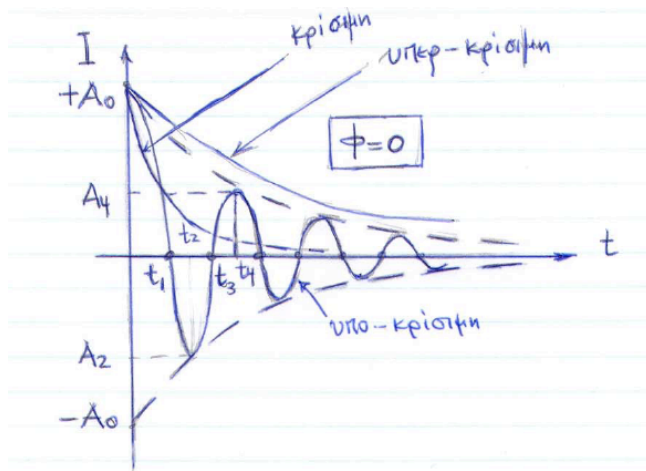 I
κρίσιμη
υπερ-κρίσιμη
+A₀
Φ=0
A₄
t₂
t
t₁
t₃
t₄
υπο-κρίσιμη
A₂
-A₀